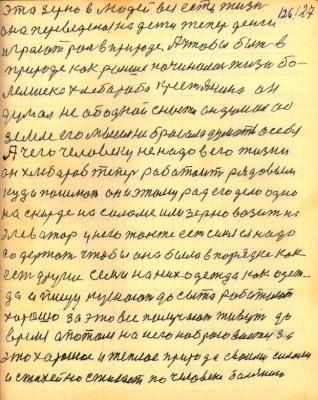 это зерно в людей вся есть жизнь 126/127
она переведена на дети теперь деньги
играют рол в природе. А чтобы быть в
природе как раньше начиналась жизнь бо-
лелиск хлебороба крестянина он
думал не об одной сныть он думал об
земле его мысли не бросала думать о себе
А чего человеку не надо в его жизни
он хлебороб теперь работает рядовым
куда пошлют он и этому рад его дело одно
на скирде на соломе или зерно возит на
элеватор у него тоже есть семя надо
содержать чтобы она была в порядке как
есть другие семи на них одежда как одеж-
да и пищу кушают до сыта работают
хорошо за это все получают живут до
время а потом на него набрасываються за
это хорошое и теплое природа своими силами
и стихейно сживает по человеки болячко